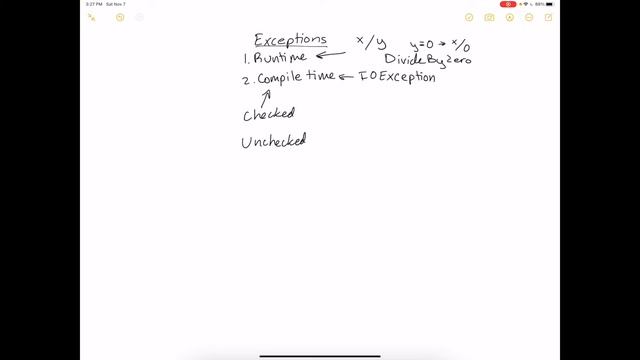 3:27 PM Sat Nov 7
88%
Exceptions x/y y=0 → x/0
1. Runtime ← DivideByZero
2. Compile time ← IOException
Checked
Unchecked